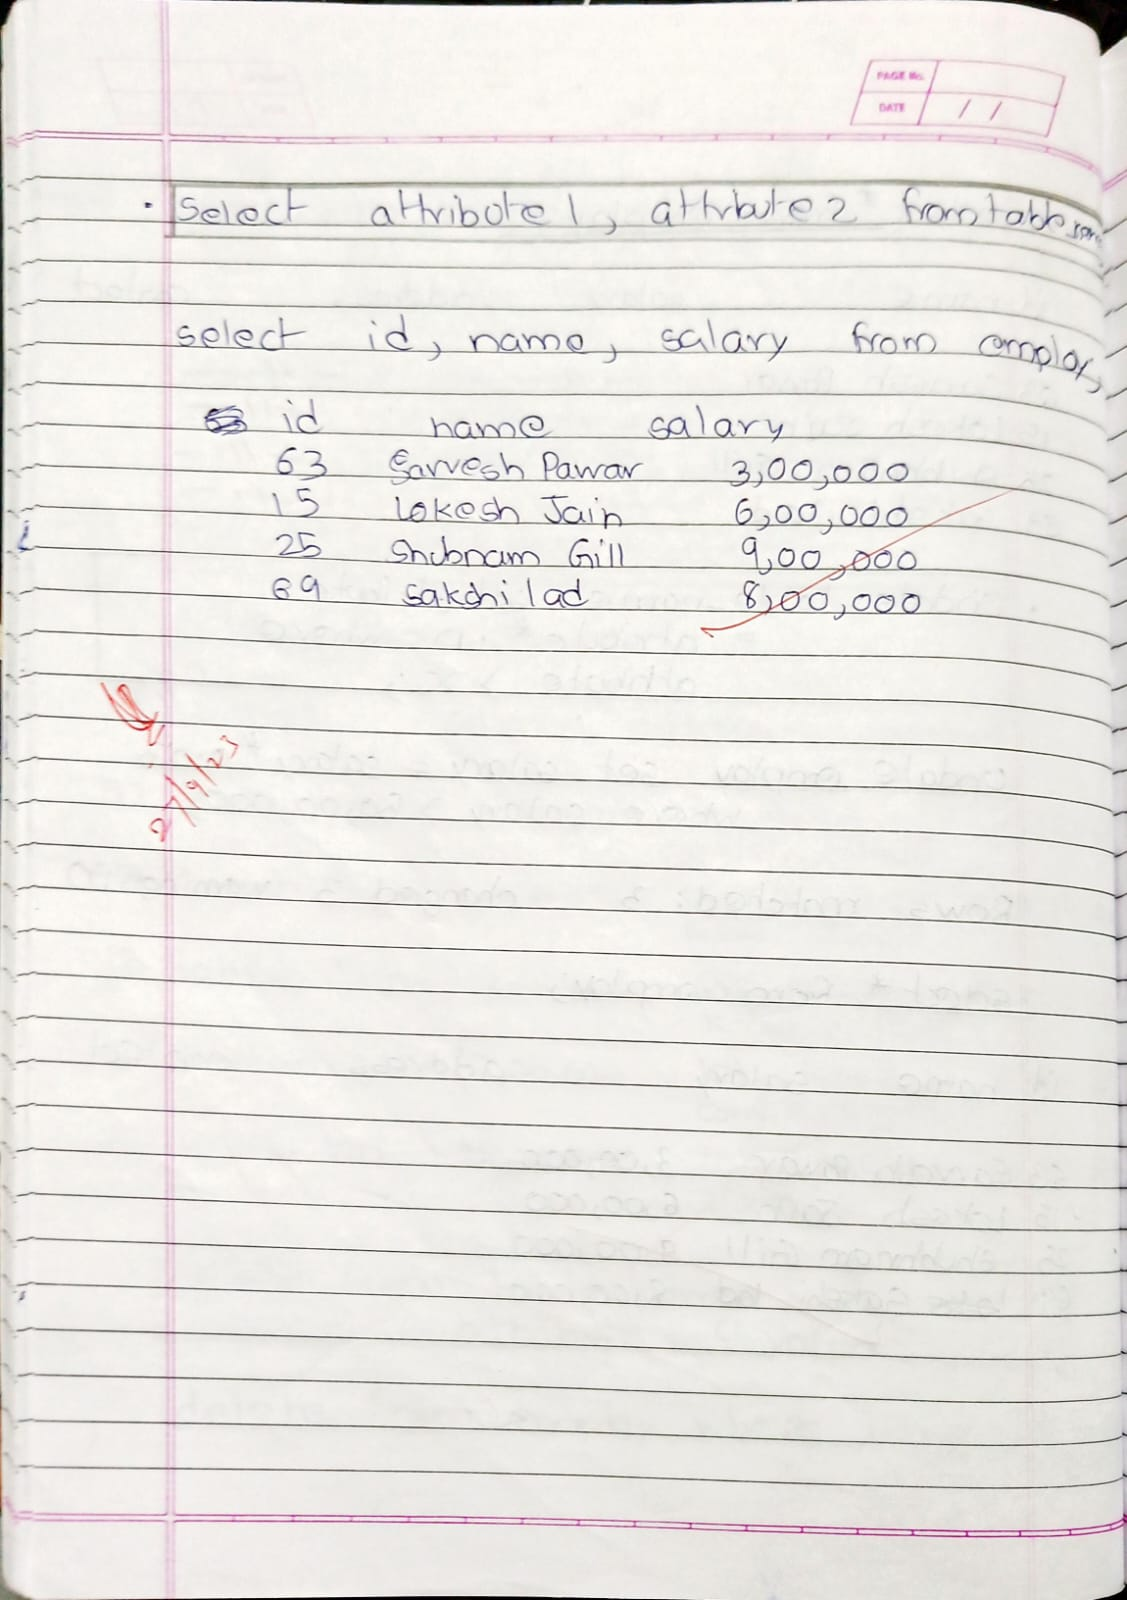 PAGE No.
DATE / /
• Select attribute1, attribute2 from table
select id, name, salary from employ;
id name salary
63 Sarvesh Pawar 3,00,000
15 Lokesh Jain 6,00,000
25 Shubnam Gill 9,00,000
69 Sakshi lad 8,00,000
27/9/23